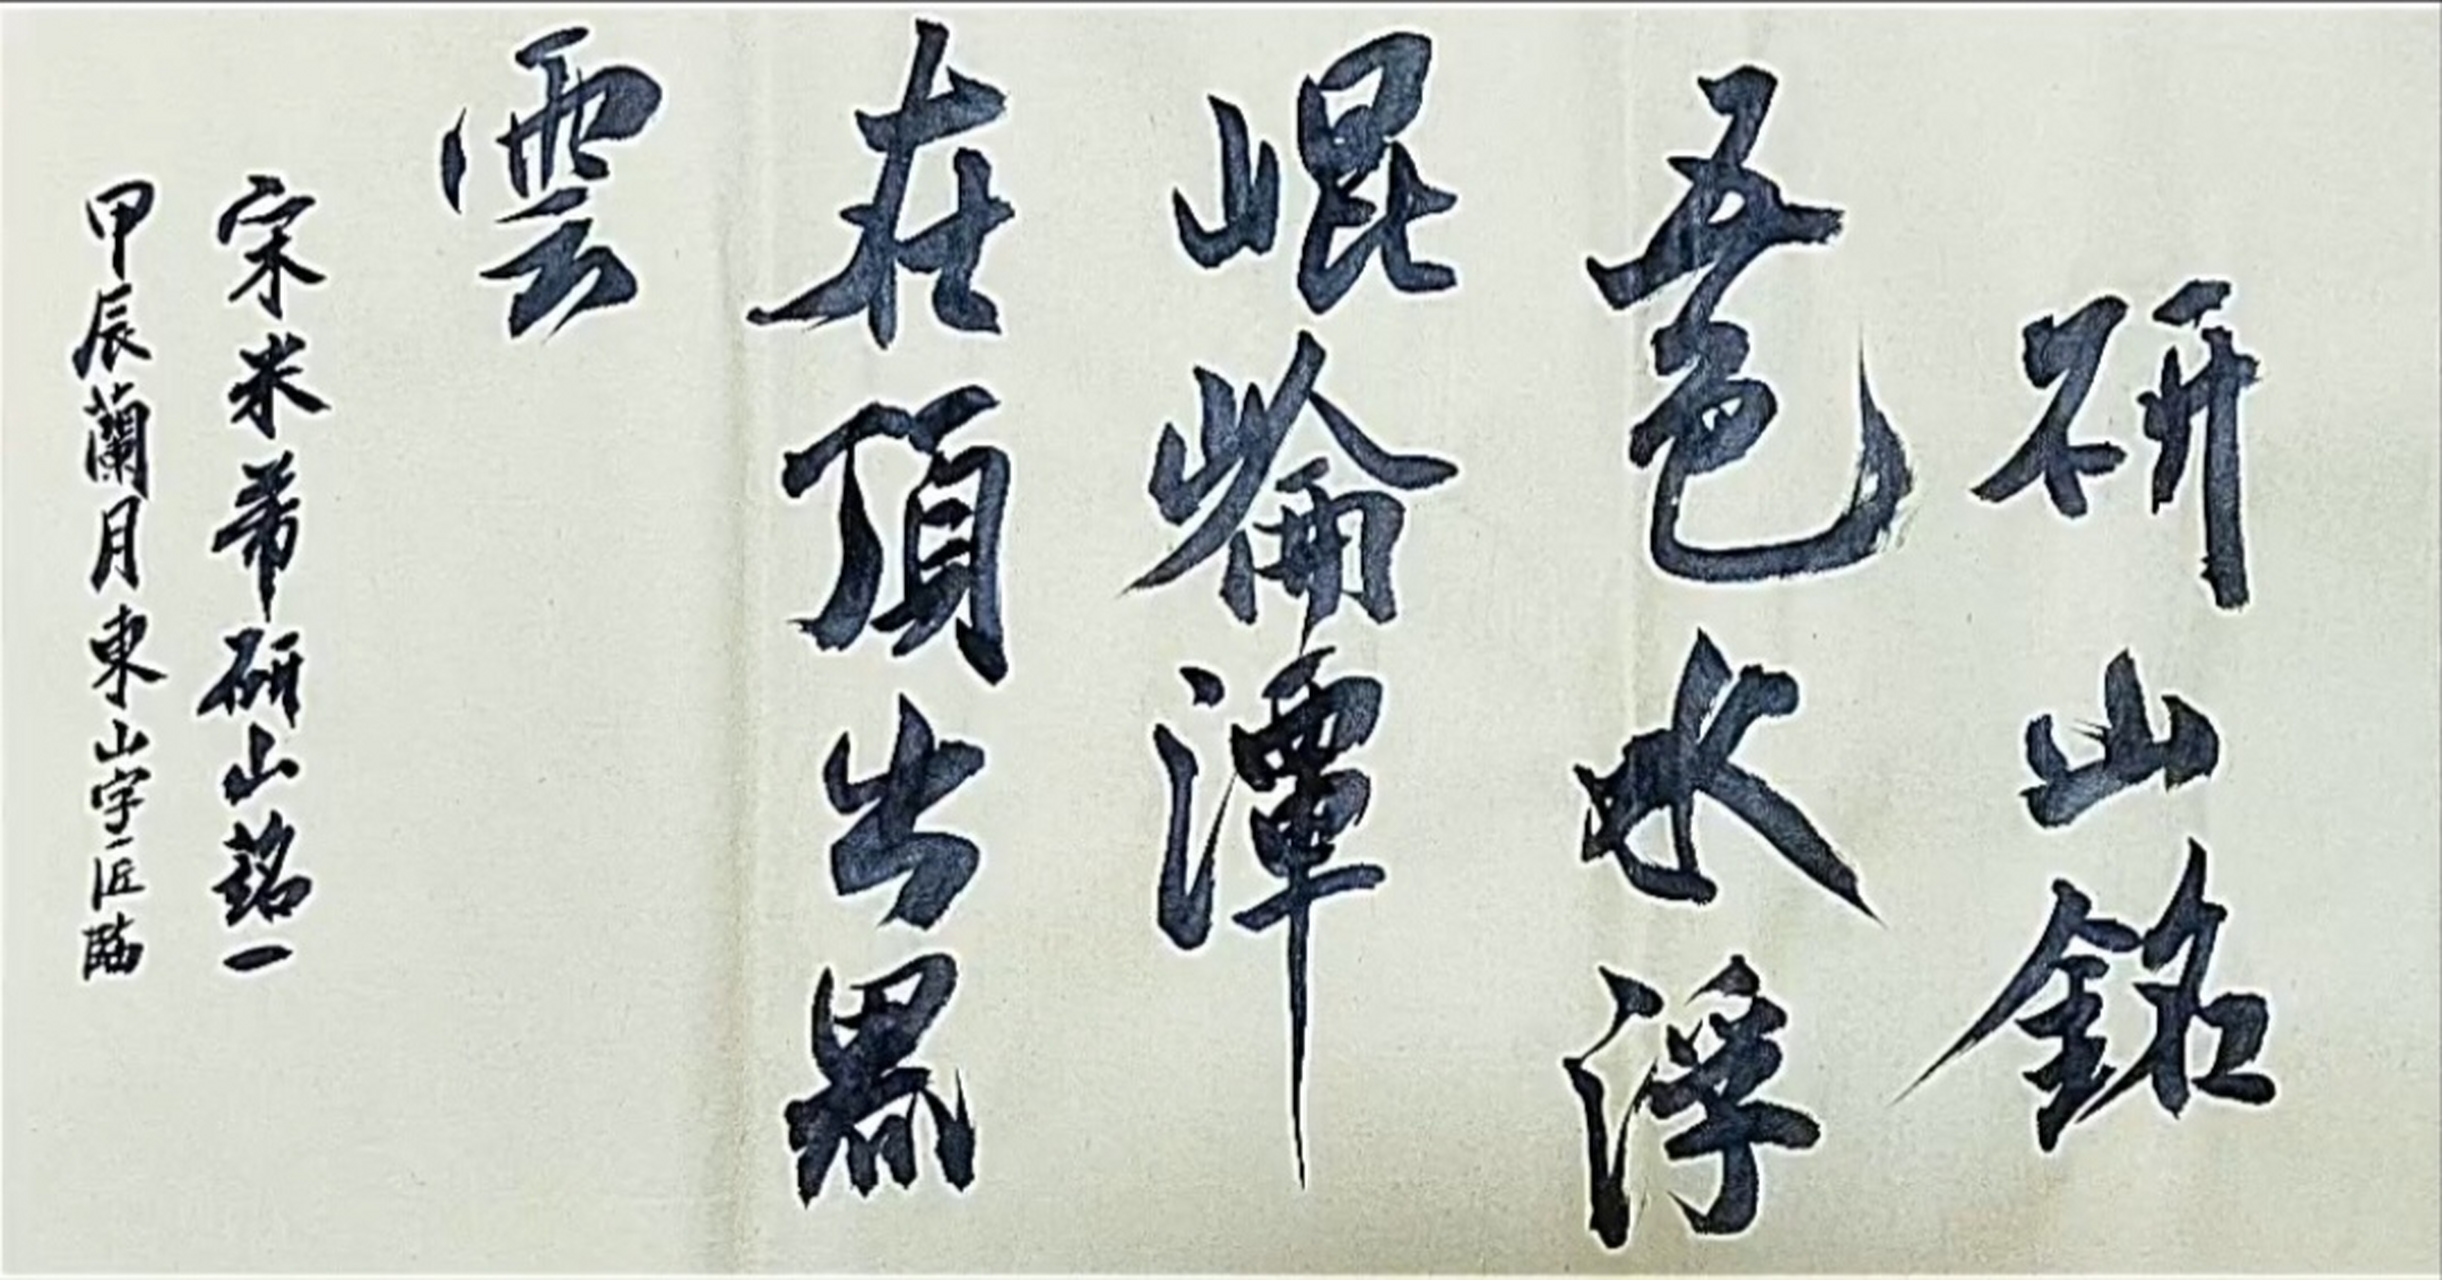 研山銘
五色水浮
崐崘潭
在頂出黑
雲
宋米芾研山銘一
甲辰蘭月東山字匠臨